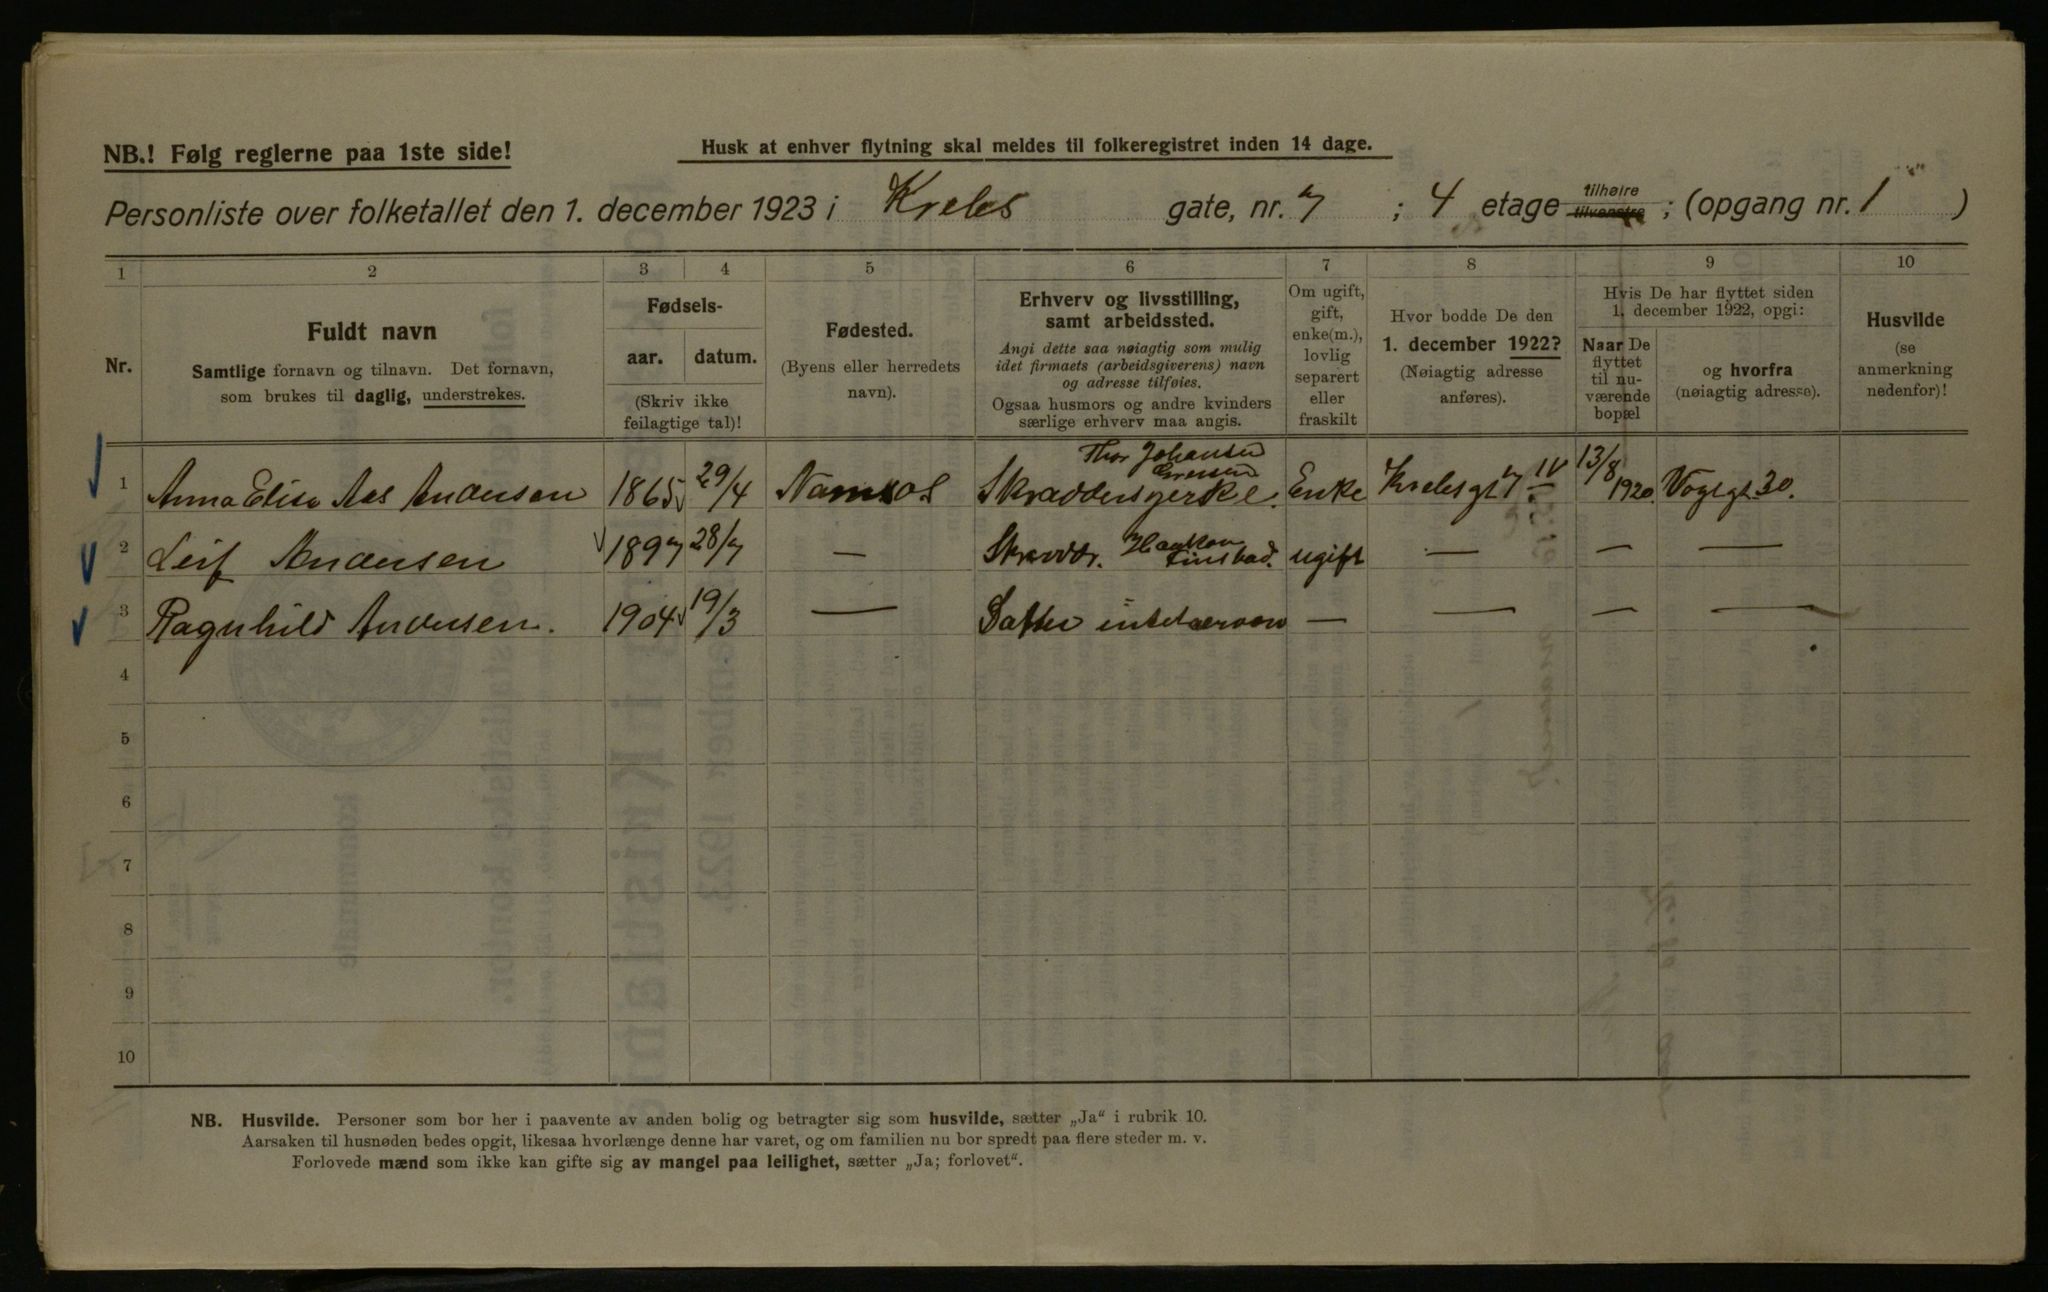 NB.! Følg reglerne paa 1ste side!
Husk at enhver flytning skal meldes til folkeregistret inden 14 dage.
Personliste over folketallet den 1. december 1923 i Krebs gate, nr. 7 ; 4 etage tilhøire tilvenstre ; (opgang nr. 1 )
1 2 3 4 5 6 7 8 9 10
Nr.
Fuldt navn
Samtlige fornavn og tilnavn. Det fornavn,
som brukes til daglig, understrekes.
Fødsels-
aar. datum.
(Skriv ikke
feilagtige tal)!
Fødested.
(Byens eller herredets
navn).
Erhverv og livsstilling,
samt arbeidssted.
Angi dette saa nøiagtig som mulig
idet firmaets (arbeidsgiverens) navn
og adresse tilføies.
Ogsaa husmors og andre kvinders
særlige erhverv maa angis.
Om ugift,
gift,
enke(m.),
lovlig
separert
eller
fraskilt
Hvor bodde De den
1. december 1922?
(Nøiagtig adresse
anføres).
Hvis De har flyttet siden
1. december 1922, opgi:
Naar De
flyttet
til nu-
værende
bopæl
og hvorfra
(nøiagtig adresse).
Husvilde
(se
anmerkning
nedenfor)!
Thor Johansen
Grensen
1 Anna Elise Aas Andersen 1865 29/4 Namsos Skræddersyerske. Enke Krebsgt 7 IV 13/8 1920. Vogtgt 30.
2 Leif Andersen 1897 28/7 — Skrædder. Haakon ugift — — —
3 Ragnhild Andersen. 1904 19/3 — Datter — — — —
4
5
6
7
8
9
10
NB. Husvilde. Personer som bor her i paavente av anden bolig og betragter sig som husvilde, sætter „Ja“ i rubrik 10.
Aarsaken til husnøden bedes opgit, likesaa hvorlænge denne har varet, og om familien nu bor spredt paa flere steder m. v.
Forlovede mænd som ikke kan gifte sig av mangel paa leilighet, sætter „Ja; forlovet“.